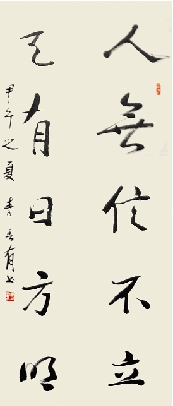 人無信不立
天有日方明
甲午之夏